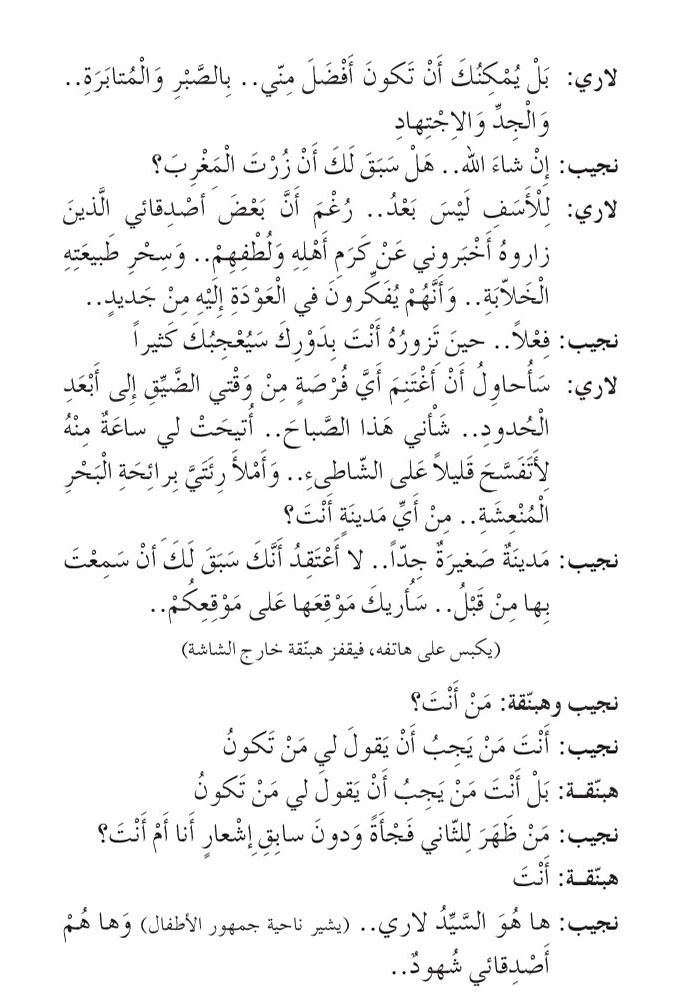 لاري: بَلْ يُمْكِنُكَ أَنْ تَكونَ أَفْضَلَ مِنّي.. بِالصَّبْرِ وَالْمُثابَرَةِ..
وَالْجِدِّ وَالاِجْتِهادِ
نجيب: إِنْ شاءَ الله.. هَلْ سَبَقَ لَكَ أَنْ زُرْتَ الْمَغْرِبَ؟
لاري: لِلْأَسَفِ لَيْسَ بَعْدُ.. رُغْمَ أَنَّ بَعْضَ أَصْدِقائي الَّذينَ
زاروهُ أَخْبَروني عَنْ كَرَمِ أَهْلِهِ وَلُطْفِهِمْ.. وَسِحْرِ طَبيعَتِهِ
الْخَلاّبَةِ.. وَأَنَّهُمْ يُفَكِّرونَ في الْعَوْدَةِ إِلَيْهِ مِنْ جَديدٍ..
نجيب: فِعْلاً.. حينَ تَزورُهُ أَنْتَ بِدَوْرِكَ سَيُعْجِبُكَ كَثيراً
لاري: سَأُحاوِلُ أَنْ أَغْتَنِمَ أَيَّ فُرْصَةٍ مِنْ وَقْتي الضَّيِّقِ إِلى أَبْعَدِ
الْحُدودِ.. شَأْني هَذا الصَّباحَ.. أُتيحَتْ لي ساعَةٌ مِنْهُ
لِأَتَفَسَّحَ قَليلاً عَلى الشّاطىءِ.. وَأَمْلَأَ رِئَتَيَّ بِرائِحَةِ الْبَحْرِ
الْمُنْعِشَةِ.. مِنْ أَيِّ مَدينَةٍ أَنْتَ؟
نجيب: مَدينَةٌ صَغيرَةٌ جِدّاً.. لا أَعْتَقِدُ أَنَّكَ سَبَقَ لَكَ أَنْ سَمِعْتَ
بِها مِنْ قَبْلُ.. سَأُريكَ مَوْقِعَها عَلى مَوْقِعِكُمْ..
(يكبس على هاتفه، فيقفز هبنّقة خارج الشاشة)
نجيب وهبنّقة: مَنْ أَنْتَ؟
نجيب: أَنْتَ مَنْ يَجِبُ أَنْ يَقولَ لي مَنْ تَكونُ
هبنّقـة: بَلْ أَنْتَ مَنْ يَجِبُ أَنْ يَقولَ لي مَنْ تَكونُ
نجيب: مَنْ ظَهَرَ لِلثّاني فَجْأَةً وَدونَ سابِقِ إِشْعارٍ أَنا أَمْ أَنْتَ؟
هبنّقـة: أَنْتَ
نجيب: ها هُوَ السَّيِّدُ لاري.. (يشير ناحية جمهور الأطفال) وَها هُمْ
أَصْدِقائي شُهودٌ..